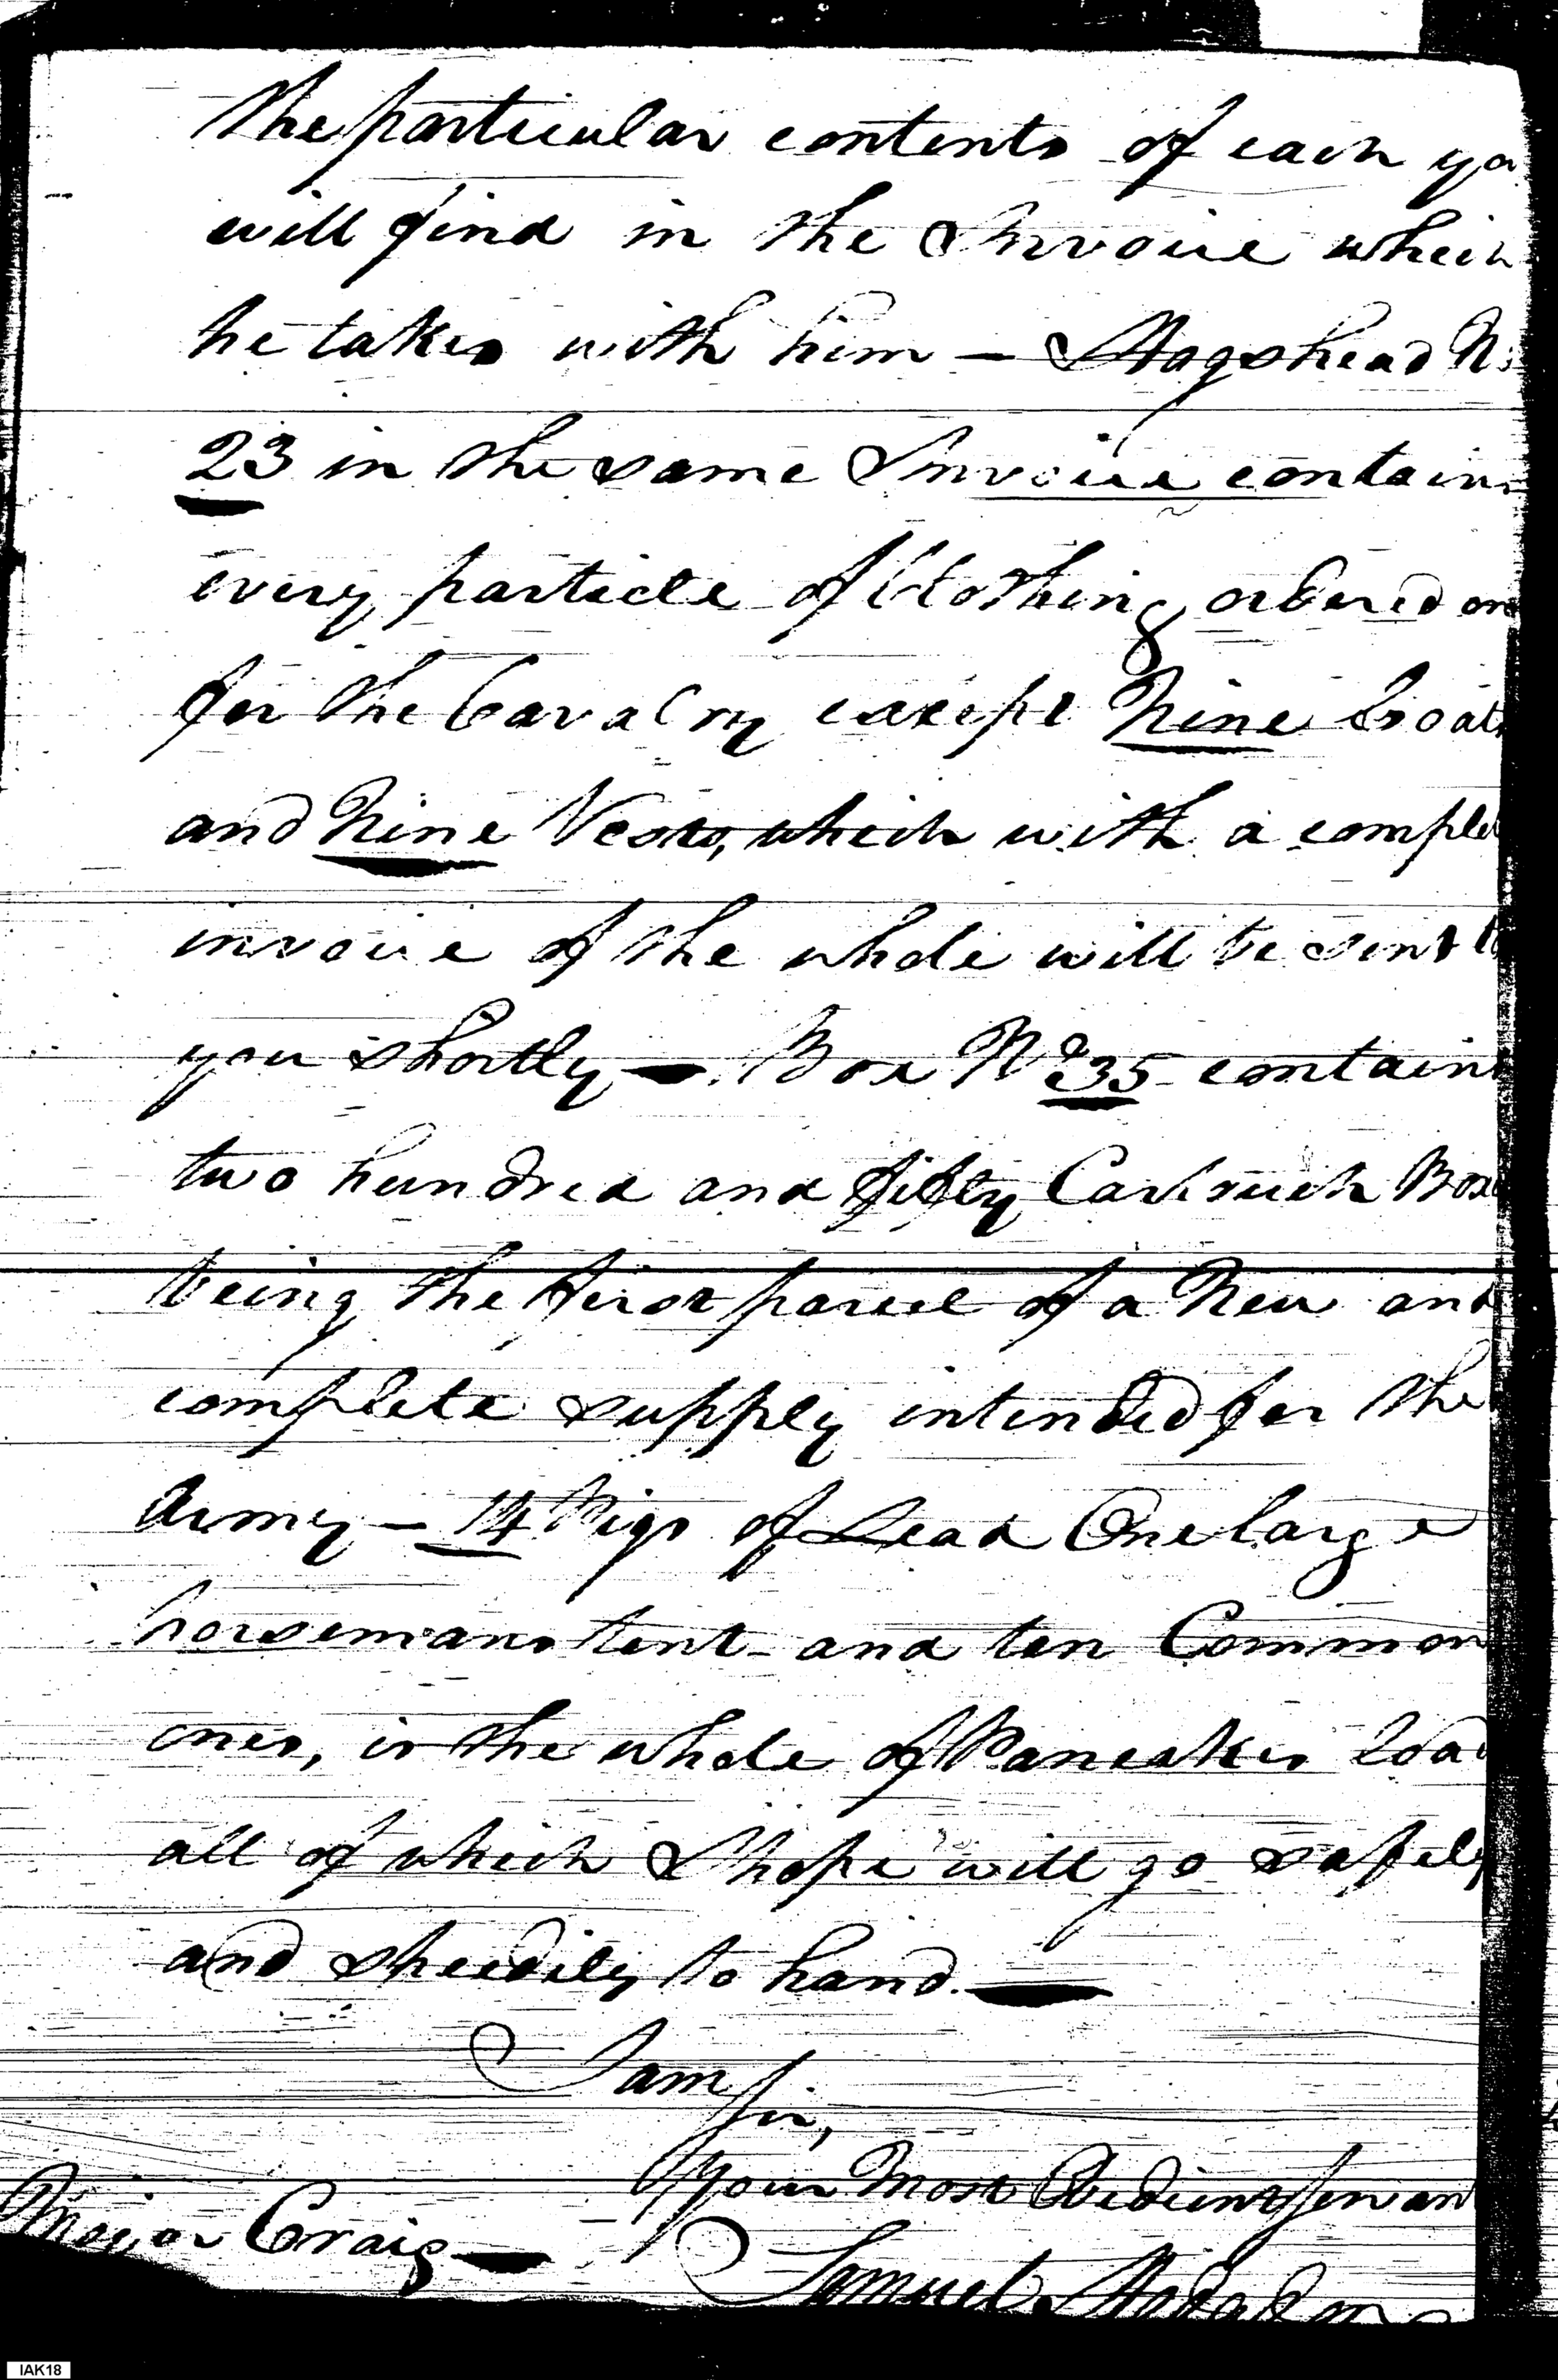 the particular contents of each yo
will find in the Invoice which
he takes with him — Hogshead N:
23 in the same Invoice contains
every particle of Clothing ordered on
for the Cavalry except Nine Coats
and Nine Vests, which with a comple
invoice of the whole will be sent to
you shortly —. Box No 35 contains
two hundred and fifty Cartouch Boxe
being the first parcel of a New and
complete supply intended for the
Army — 14 Pigs of Lead One large
horsemans tent and ten Common
ones, is the whole of Pancakes load
all of which I hope will go safely
and speedily to hand. —
I am
Sir,
Your Most Obedient Servant
Major Craig —
Samuel Hodgdon
IAK18